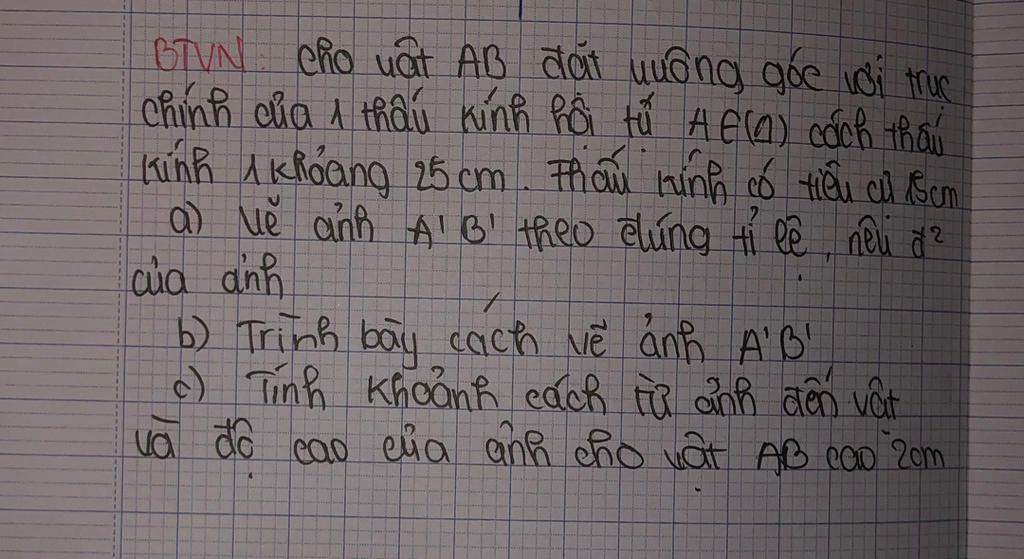 BTVN: Cho vật AB đặt vuông góc với trục
chính của 1 thấu kính hội tụ A∈(Δ) cách thấu
kính 1 khoảng 25 cm. Thấu kính có tiêu cự 15cm
a) Vẽ ảnh A'B' theo đúng tỉ lệ, nêu đ²
của ảnh
b) Trình bày cách vẽ ảnh A'B'
c) Tính khoảnh cách từ ảnh đến vật
và độ cao của ảnh cho vật AB cao 2cm